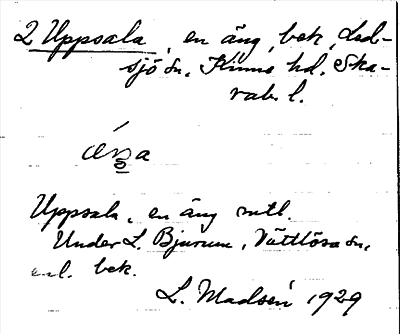 2 Uppsala, en äng, bek, Led-
sjö sn, Kinne hd. Ska-
rab. l.
Uppsala, en äng
Under L. Bjurum, Vättlösa sn,
enl. bek.
L. Madsén 1929